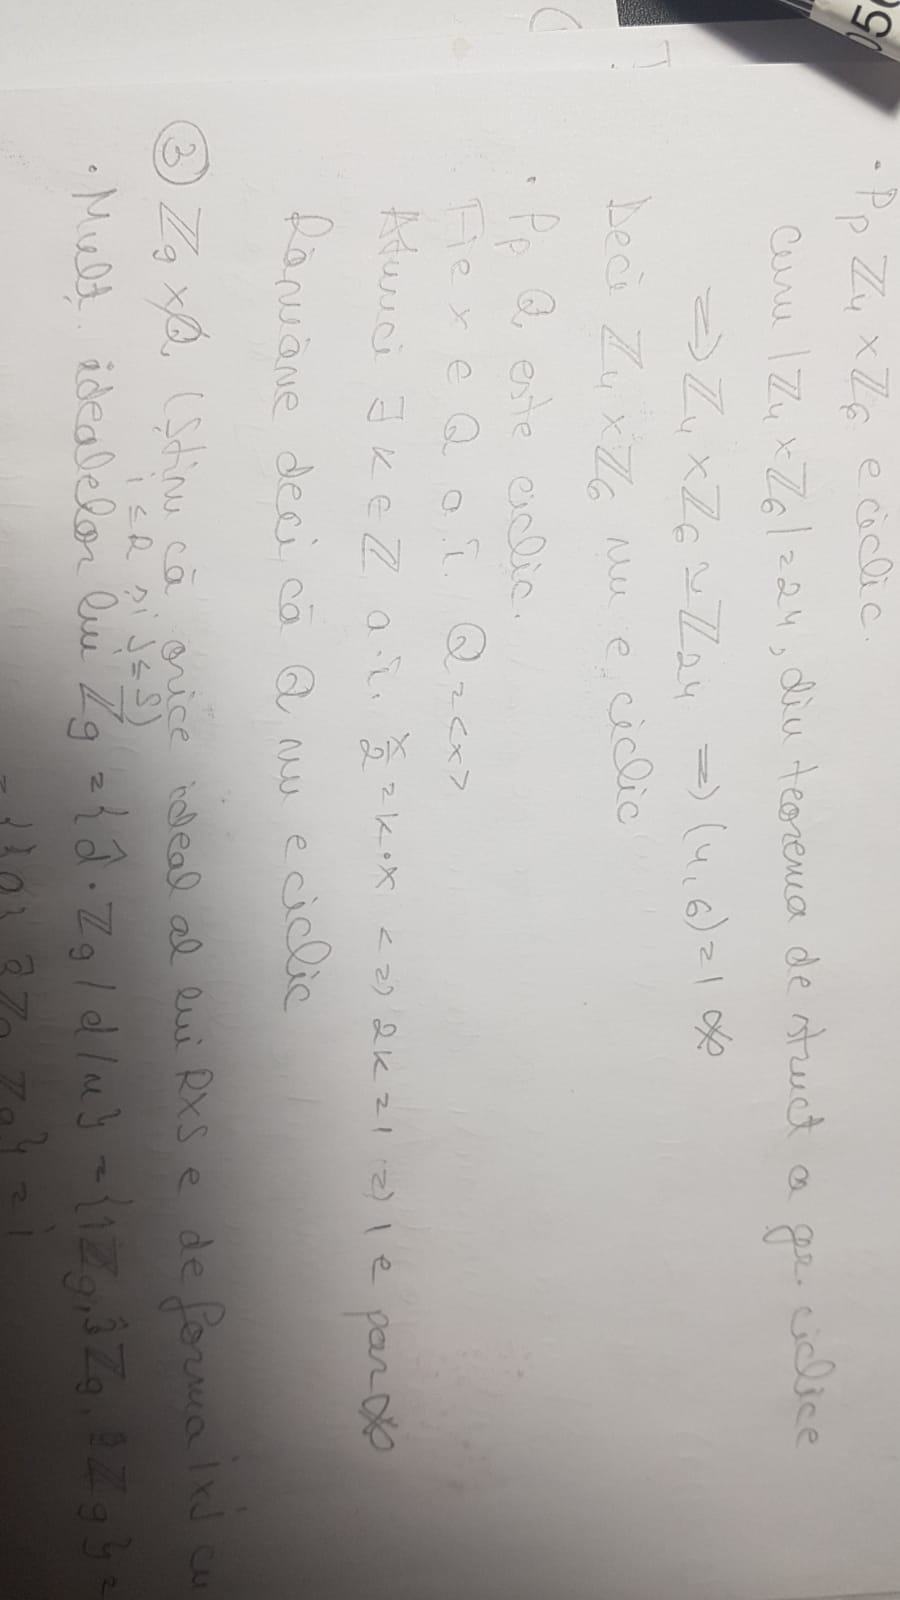 • Pp ℤ₄ × ℤ₆ e ciclic.
cum |ℤ₄ × ℤ₆| = 24, din teorema de struct a gr. ciclice
⇒ ℤ₄ × ℤ₆ ≃ ℤ₂₄ ⇒ (4, 6) = 1
Deci ℤ₄ × ℤ₆ nu e ciclic
• Pp Q este ciclic.
Fie x ∈ Q a.î. Q = <x>
Atunci ∃ k ∈ ℤ a.î. x/2 = k·x <=> 2k = 1 => 1 e par
Rămâne deci că Q nu e ciclic
③ ℤ₉ × Q (Știm că orice ideal al lui R×S e de forma i×j cu
i ≤ R și j ≤ S)
• Mulț. idealelor lui ℤ₉ = { d̂ · ℤ₉ / d / n } = { 1ℤ₉, 3̂ℤ₉, 9ℤ₉ } =
= { {0}, 3̂ℤ₉, ℤ₉ } = i